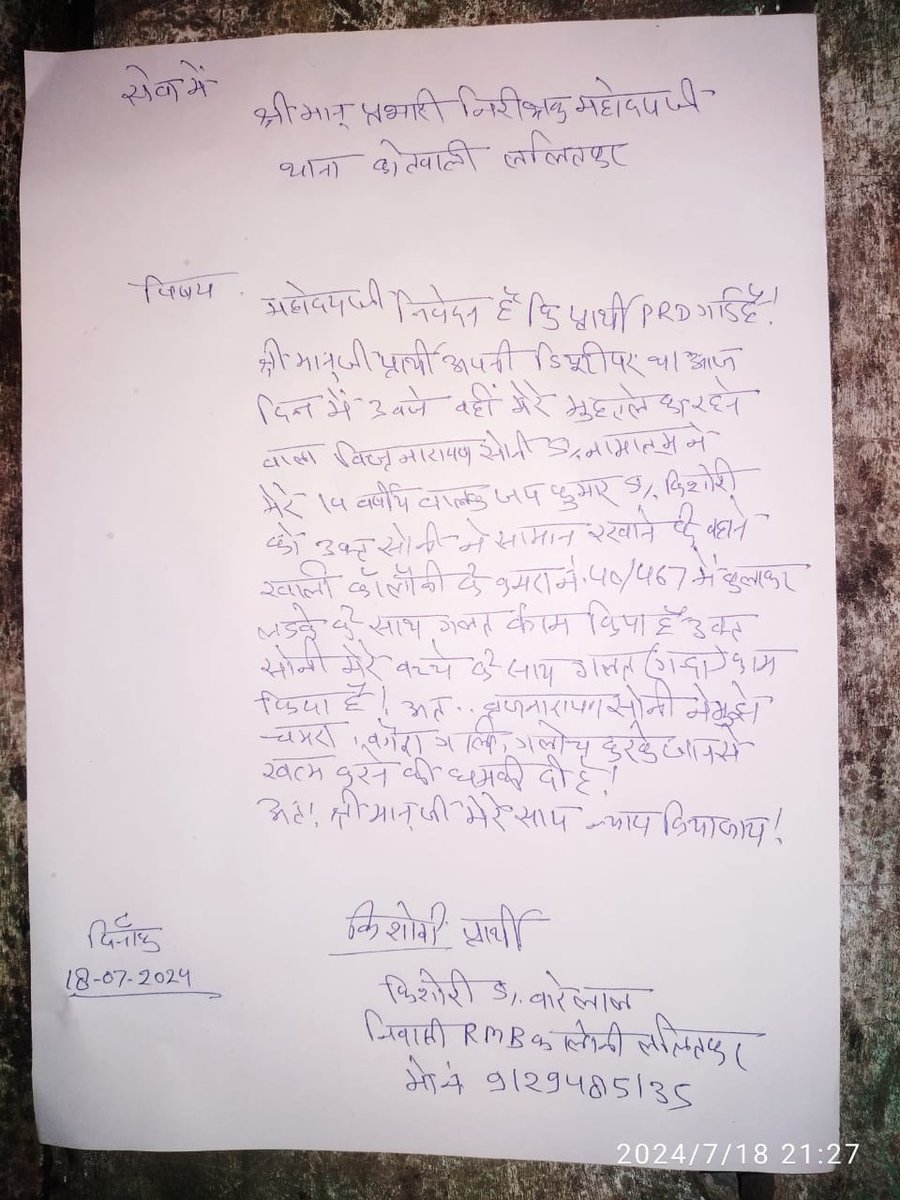 सेवा में
श्री मान् प्रभारी निरीक्षक महोदय जी
थाना कोतवाली ललितपुर
विषय महोदय जी निवेदन है कि प्रार्थी PRD गार्ड है!
श्री मान् जी प्रार्थी अपनी डियूटी पर था आज
दिन में 3 बजे वहीं मेरे मुहल्ले का रहने
वाला नारायण सोनी S/. नामालूम ने
मेरे 14 वर्षीय बालक जय कुमार S/. किशोरी
को उक्त सोनी ने सामान रखवाने के बहाने
खाली कॉलौनी के कमरा नं. 40/467 में बुलाकर
लडके के साथ गलत काम किया है उक्त
सोनी मेरे बच्चे के साथ गलत (गन्दा) काम
किया है! अत.. नारायण सोनी ने मुझे
चमरा, वगैरा गाली, गलोच करके जान से
खत्म करने की धमकी दी है!
अतः! श्री मान् जी मेरे साथ न्याय किया जाय!
दिनाँक
18-07-2024
किशोरी प्रार्थी
किशोरी S/. बारेलाल
निवासी RMB कालोनी ललितपुर
मो नं 9129485135
2024/7/18 21:27